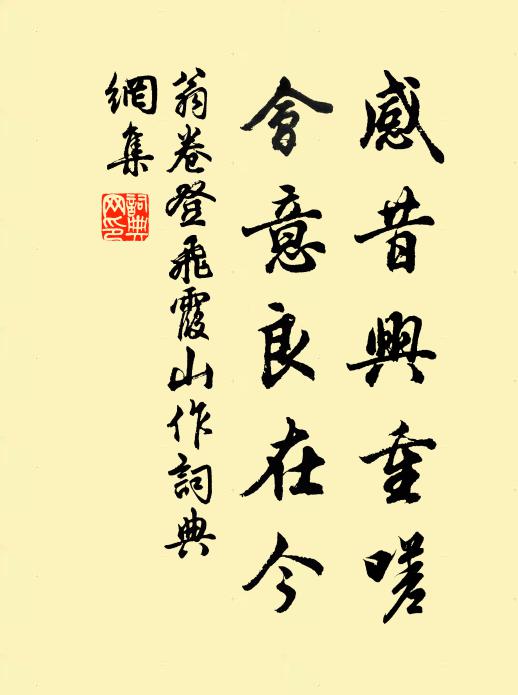 感昔興重嗟
會意良在今
翁卷登飛霞山作詞典
網集
詞典网印